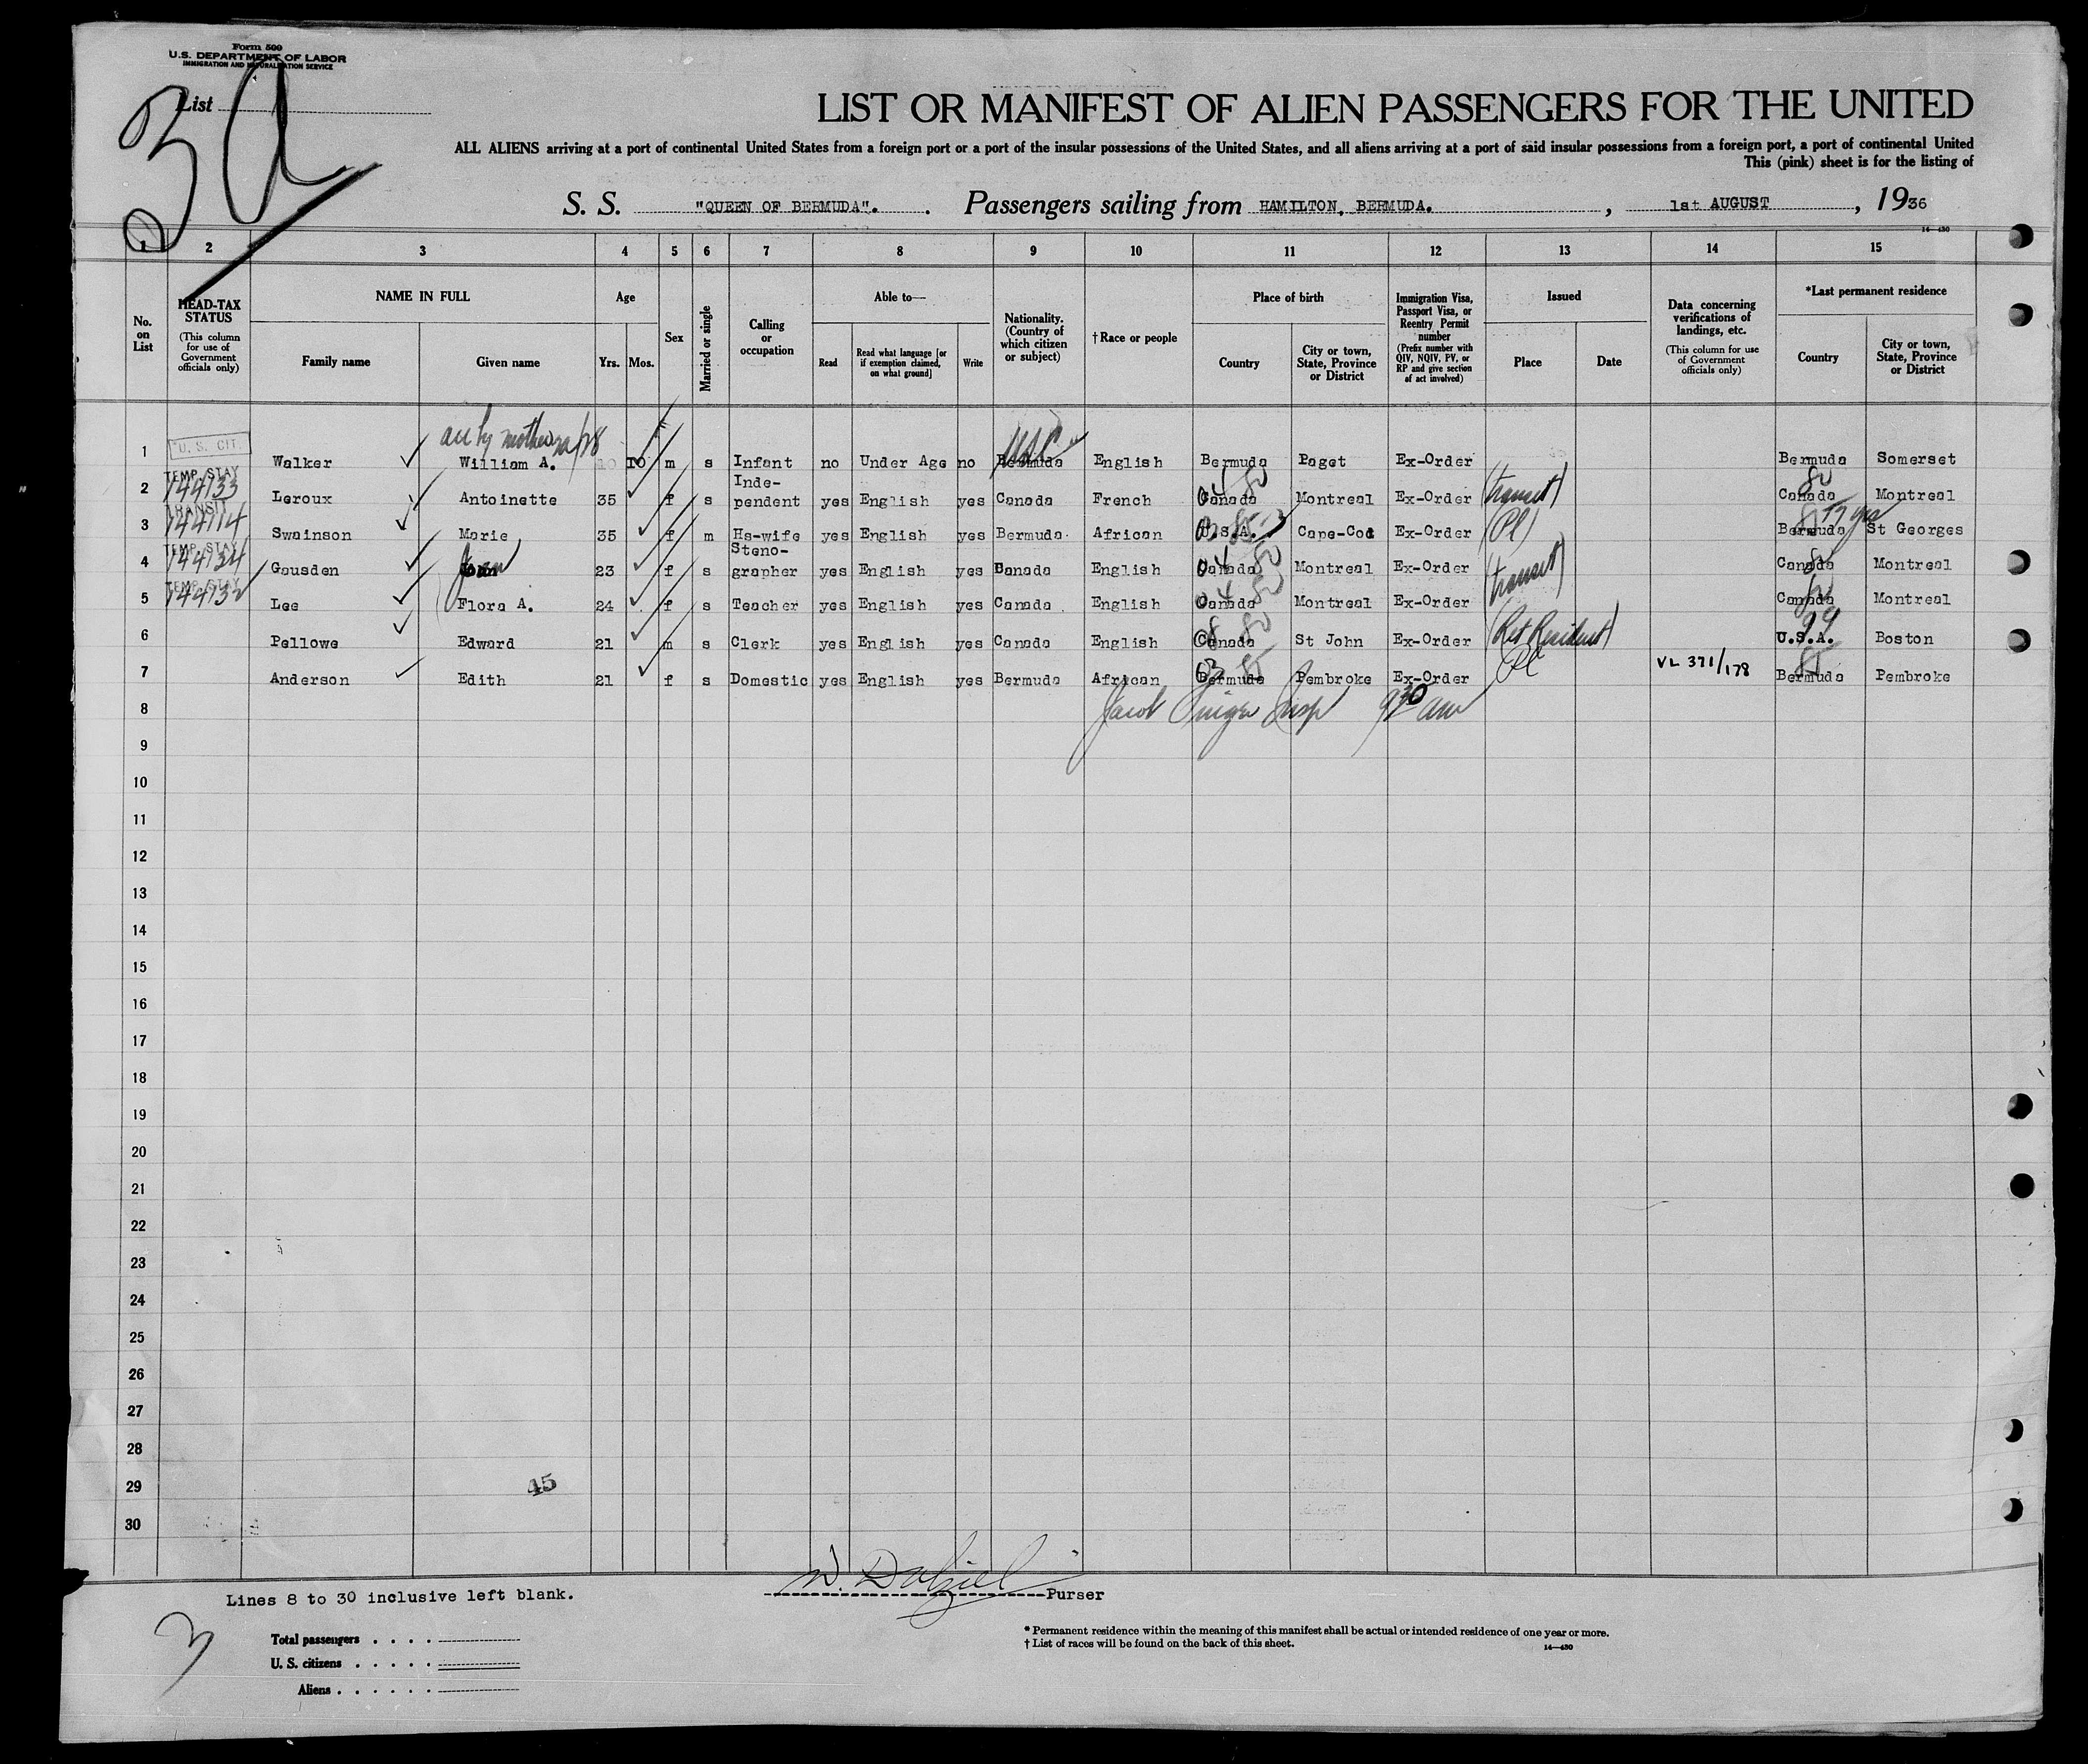 Form 500
U.S. DEPARTMENT OF LABOR
IMMIGRATION AND NATURALIZATION SERVICE
List
3
LIST OR MANIFEST OF ALIEN PASSENGERS FOR THE UNITED
ALL ALIENS arriving at a port of continental United States from a foreign port or a port of the insular possessions of the United States, and all aliens arriving at a port of said insular possessions from a foreign port, a port of continental United
This (pink) sheet is for the listing of
S. S. "QUEEN OF BERMUDA". Passengers sailing from HAMILTON, BERMUDA. , 1st AUGUST , 1936
14-480
1 2 3 4 5 6 7 8 9 10 11 12 13 14 15
No. on List
HEAD-TAX STATUS (This column for use of Government officials only)
NAME IN FULL Family name Given name
Age Yrs. Mos.
Sex
Married or single
Calling or occupation
Able to— Read Read what language [or if exemption claimed, on what ground] Write
Nationality. (Country of which citizen or subject)
†Race or people
Place of birth Country City or town, State, Province or District
Immigration Visa, Passport Visa, or Reentry Permit number (Prefix number with QIV, NQIV, PV, or RP and give section of act involved)
Issued Place Date
Data concerning verifications of landings, etc. (This column for use of Government officials only)
*Last permanent residence Country City or town, State, Province or District
1 U. S. CIT. Walker William A. 10 m s Infant no Under Age no Bermuda USC English Bermuda Paget Ex-Order Bermuda Somerset
2 TEMP. STAY 144133 Leroux Antoinette 35 f s Inde-pendent yes English yes Canada French Canada Montreal Ex-Order (transit) Canada Montreal
3 TRANSIT 144114 Swainson Marie 35 f m Hs-wife yes English yes Bermuda African U.S.A. Cape-Cod Ex-Order (Pl) Bermuda St Georges
4 TEMP. STAY 144134 Gausden Joan 23 f s Steno-grapher yes English yes Canada English Canada Montreal Ex-Order (transit) Canada Montreal
5 TEMP. STAY 144132 Lee Flora A. 24 f s Teacher yes English yes Canada English Canada Montreal Ex-Order Canada Montreal
6 Pellowe Edward 21 m s Clerk yes English yes Canada English Canada St John Ex-Order (Ret Resident) U.S.A. Boston
7 Anderson Edith 21 f s Domestic yes English yes Bermuda African Bermuda Pembroke Ex-Order Pl VL 371/178 Bermuda Pembroke
8 Jacob Insp 9 30 am
9
10
11
12
13
14
15
16
17
18
19
20
21
22
23
24
25
26
27
28
29 45
30
Lines 8 to 30 inclusive left blank.
W. Dalziel Purser
3
Total passengers
U. S. citizens
Aliens
* Permanent residence within the meaning of this manifest shall be actual or intended residence of one year or more.
† List of races will be found on the back of this sheet.
14-480